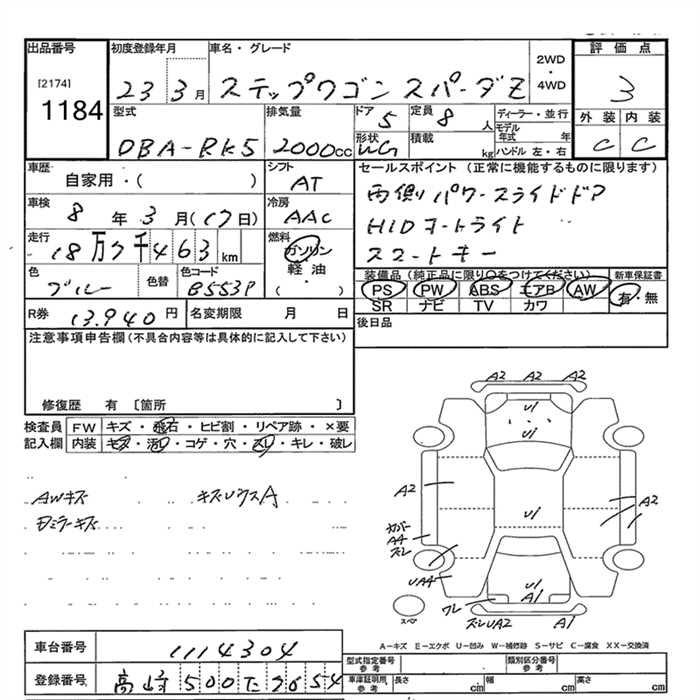 出品番号 初度登録年月 車名・グレード 評価点
[2174] 2WD・4WD
1184 23 3月 ステップワゴン スパーダZ 3
型式 排気量 ドア 5 定員 8 人 ディーラー・並行 外装 内装
モデル年式 年
DBA-RK5 2000cc 形状 WG 積載 kg ハンドル 左・右 C C
車歴 シフト セールスポイント (正常に機能するものに限ります)
自家用・( ) AT 両側パワースライドドア
車検 冷房 HIDオートライト
8年 3月(17日) AAC スマートキー
走行 燃料
18万7千463km ガソリン・軽油・( )
装備品(純正品に限り○をつけてください) 新車保証書
色 色替 色コード PS PW ABS エアB AW 有・無
ブルー B553P SR ナビ TV カワ
R券 13.940円 名変期限 月 日 後日品
注意事項申告欄(不具合内容等は具体的に記入して下さい)
修復歴 有 〔箇所 〕
検査員 FW キズ・飛石・ヒビ割・リペア跡・×要
記入欄 内装 キズ・汚レ・コゲ・穴・スレ・キレ・破レ
AWキズ キズUウスA
ミラーキズ
A2 A2 A2
U1
U1
A2 U1 A2
カバー
A4
スレ
UA4 U1
ワレ A1
スペア スレUA2 A1
A-キズ E-エクボ U-凹み W-補修跡 S-サビ C-腐食 XX-交換済
車台番号 1114304
型式指定番号 参考 類別区分番号 参考
登録番号 高崎500 7654
車庫証明用 参考 長さ cm 幅 cm 高さ cm